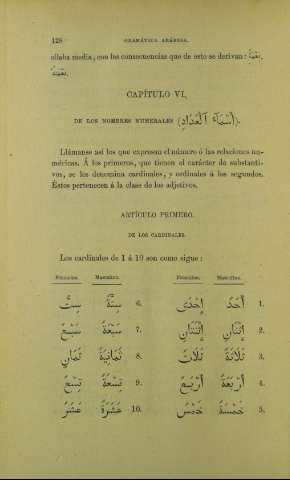 128 GRAMÁTICA ÁRABIGA.
sílaba media, con las consecuencias que de esto se derivan:
CAPÍTULO VI.
DE LOS NOMBRES NUMERALES (أَسْمَآءُ ٱلْعَدَادِ).
Llámanse así los que expresan el número ó las relaciones nu-
méricas. Á los primeros, que tienen el carácter de substanti-
vos, se les denomina cardinales, y ordinales á los segundos.
Éstos pertenecen á la clase de los adjetivos.
ARTÍCULO PRIMERO.
DE LOS CARDINALES.
Los cardinales de 1 á 10 son como sigue:
Femenino. Masculino. Femenino. Masculino.
سِتٌّ سِتَّةٌ 6. إِحْدَى أَحَدٌ 1.
سَبْعٌ سَبْعَةٌ 7. إِثْنَتَانِ إِثْنَانِ 2.
ثَمَانٍ ثَمَانِيَةٌ 8. ثَلَاثٌ ثَلَاثَةٌ 3.
تِسْعٌ تِسْعَةٌ 9. أَرْبَعٌ أَرْبَعَةٌ 4.
عَشْرٌ عَشَرَةٌ 10. خَمْسٌ خَمْسَةٌ 5.